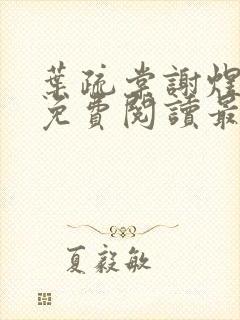 葉疏棠謝煜
免費閱讀最
夏毅敏